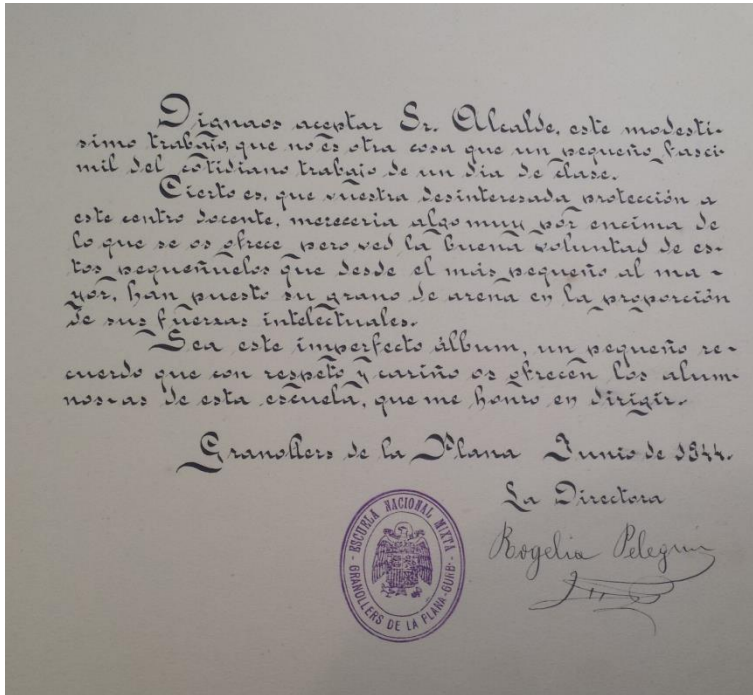 Dignaos aceptar Sr. Alcalde, este modestí-
simo trabajo, que no es otra cosa que un pequeño fascí-
mil del cotidiano trabajo de un día de clase.
Cierto es, que vuestra desinteresada protección a
este centro docente, merecería algo muy por encima de
lo que se os ofrece, pero ved la buena voluntad de es-
tos pequeñuelos que desde el más pequeño al ma-
yor, han puesto su grano de arena en la proporción
de sus fuerzas intelectuales.
Sea este imperfecto álbum, un pequeño re-
cuerdo que con respeto y cariño os ofrecen los alum-
nos-as de esta escuela, que me honro en dirigir.
Granollers de la Plana Junio de 1944.
La Directora
Rogelia Pelegrin
ESCUELA NACIONAL MIXTA
GRANOLLERS DE LA PLANA-GURB